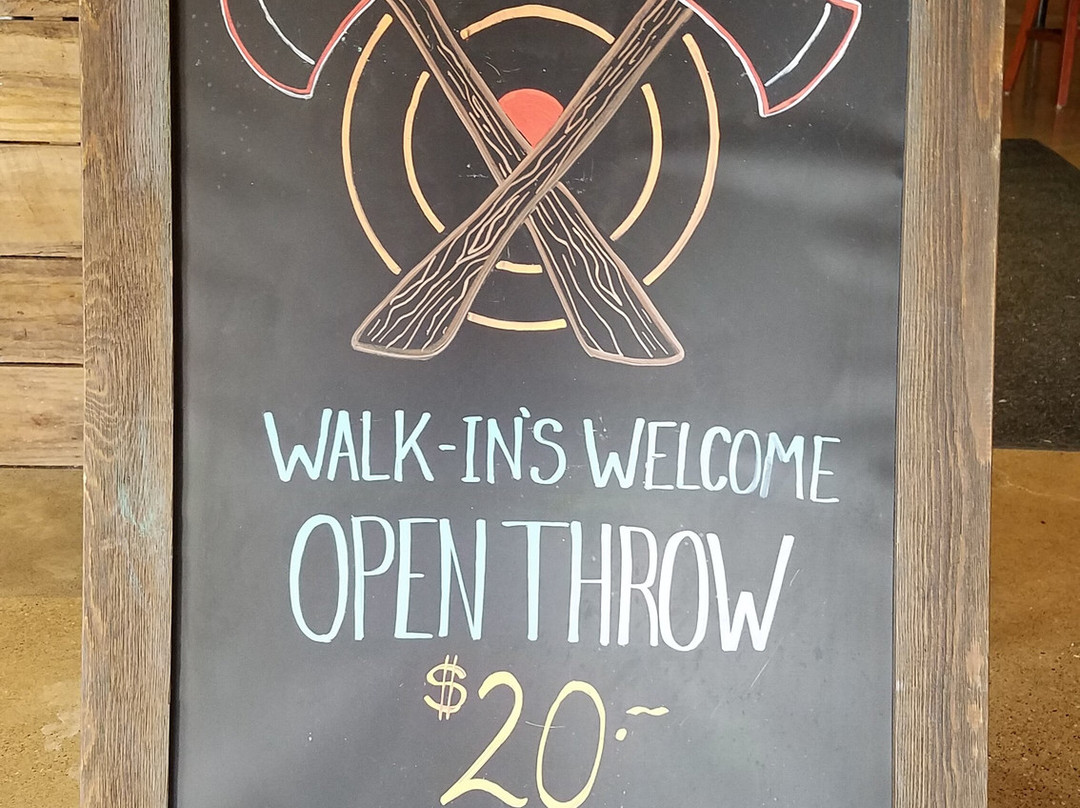 WALK-IN'S WELCOME
OPEN THROW
$20.-